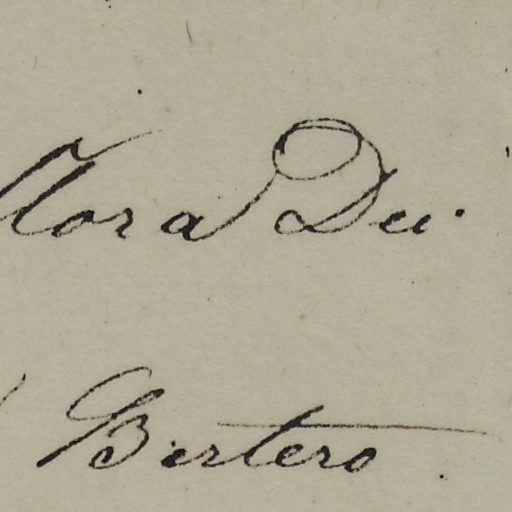 Flora Dec.
Bertero.